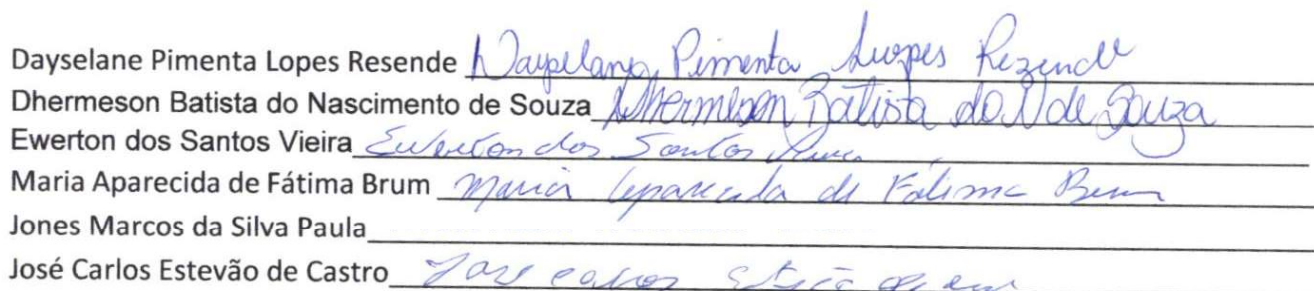 Dayselane Pimenta Lopes Resende Dayselane Pimenta Lopes Rezende
Dhermeson Batista do Nascimento de Souza Dhermeson Batista do N de Souza
Ewerton dos Santos Vieira Ewerton dos Santos
Maria Aparecida de Fátima Brum Maria Aparecida de Fátima Brum
Jones Marcos da Silva Paula
José Carlos Estevão de Castro José Carlos